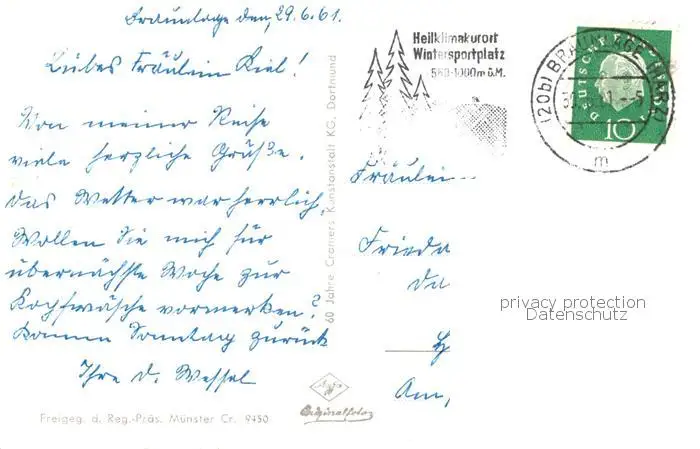 Braunlage den, 29.6.61.
Liebes Fräulein Kiel!
Von meiner Reise
viele herzliche Grüße.
Das Wetter war herrlich.
Wollen Sie mich für
übernächste Woche zur
Kopfwäsche vormerken?
Komme Sonntag zurück
Ihre D. Wessel
Freigeg. d. Reg.-Präs. Münster Cr. 9450
60 Jahre Cramers Kunstanstalt KG, Dortmund
Originalfoto
Heilklimakurort
Wintersportplatz
560-1000m ü.M.
(20b) BRAUNLAGE (HARZ)
m
DEUTSCHE
10
Fräulein
Frieda
Da
Am,
privacy protection
Datenschutz